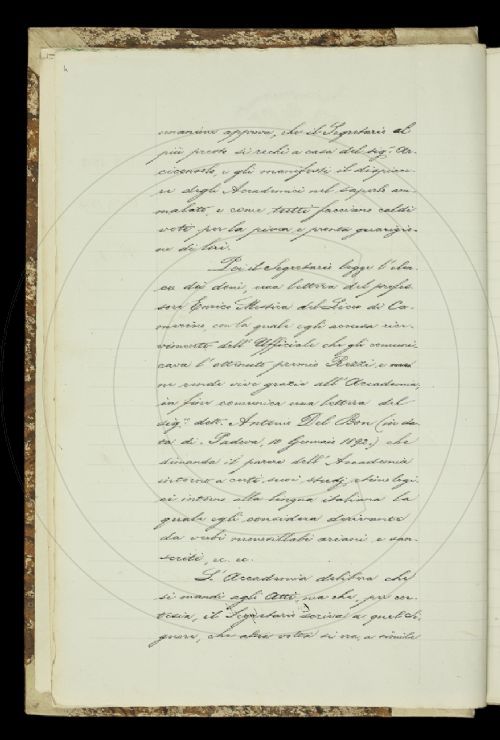 4
manime approva, che il Segretario al
più presto si rechi a casa del sig.r Ar
ciconsolo, e gli manifesti il dispiace-
re degli Accademici nel saperlo am-
malato, e come tutti facciano caldi
voti per la piena e pronta guarigio-
ne di lui.
Poi il Segretario legge l'elen-
co dei doni, una lettera del profes-
sore Enrico Mestica del Liceo di Ca-
merino, con la quale egli accusa rice-
vimento dell'Ufficiale che gli comuni-
cava l'ottenuto premio Rezzi, e
ne rende vive grazie all'Accademia;
in fine comunica una lettera del
sig.r dott. Antonio Del Bon (in da-
ta di Padova, 10 Gennaio 1892) che
dimanda il parere dell'Accademia
intorno a certi suoi studj etimologi-
ci intorno alla lingua italiana la
quale egli considera derivante
da verbi monosillabi ariani e san-
scriti, ec. ec.
L'Accademia delibera che
si mandi agli Atti, ma che, per cor-
tesia, il Segretario scriva a quel Si-
gnore, che altra volta si ra, a simile